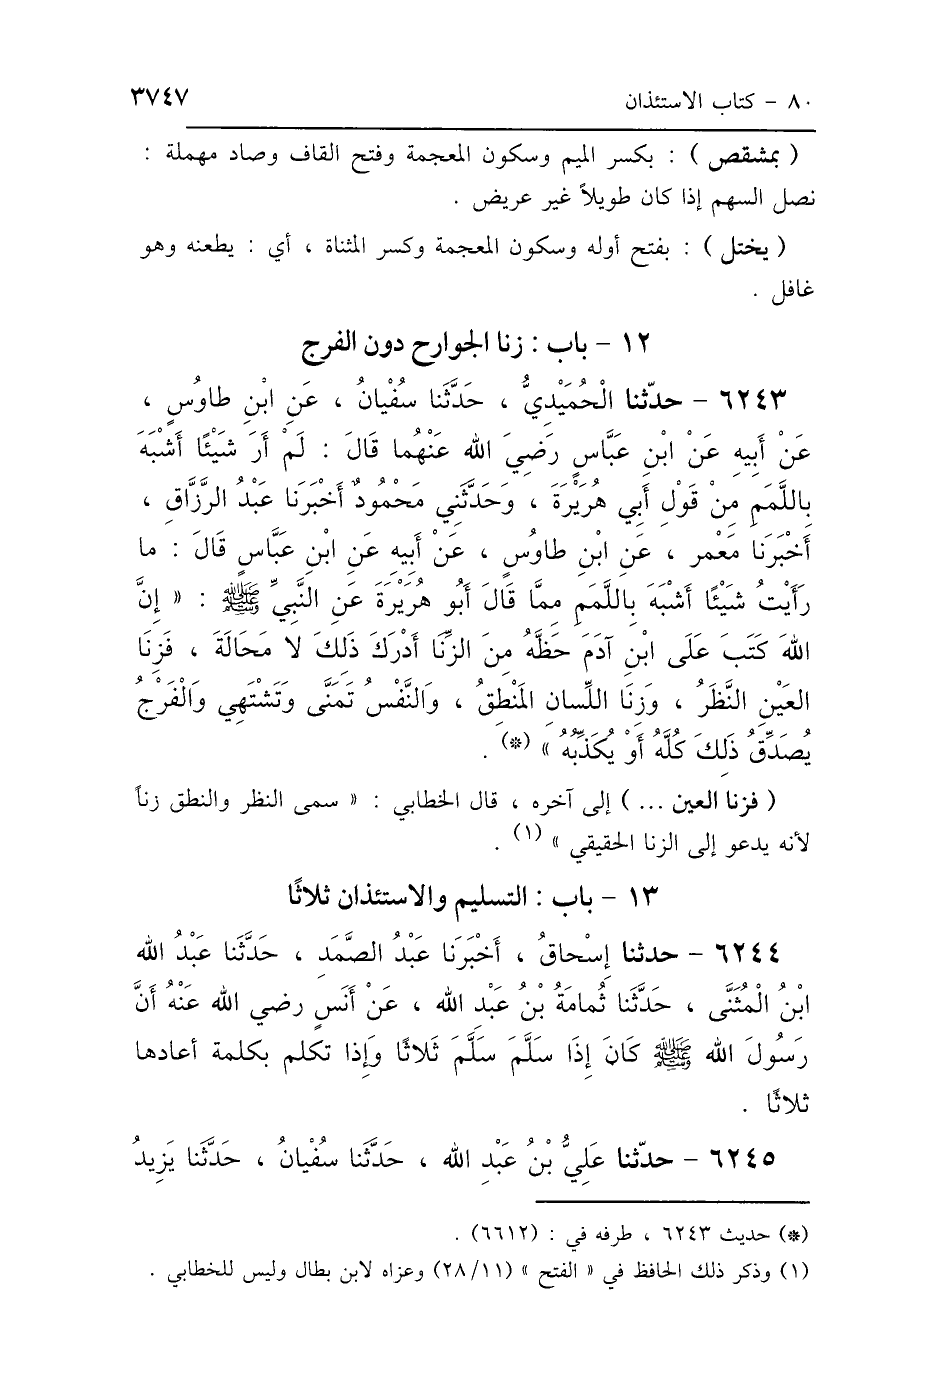 ٨٠ - كتاب الاستئذان ٣٧٤٧
( بمشقص ) : بكسر الميم وسكون المعجمة وفتح القاف وصاد مهملة :
نصل السهم إذا كان طويلاً غير عريض .
( يختل ) : بفتح أوله وسكون المعجمة وكسر المثناة ، أي : يطعنه وهو
غافل .
١٢ - باب : زنا الجوارح دون الفرج
٦٢٤٣ - حدّثنا الْحُمَيْدِيُّ ، حَدَّثَنا سُفْيانُ ، عَنِ ابْنِ طاوُسٍ ،
عَنْ أَبِيه عَنْ ابْنِ عبَّاسٍ رَضِيَ الله عَنْهُما قَالَ : لَمْ أَرَ شَيْئًا أَشْبَهَ
بِاللَّمَمِ مِنْ قَوْلِ أَبي هُرَيْرَةَ ، وَحَدَّثَنِي مَحْمُودٌ أَخْبَرَنا عَبْدُ الرَّزَّاقِ ،
أَخْبَرَنا مَعْمر ، عَنِ ابْنِ طاوُسٍ ، عَنْ أَبِيه عَنِ ابْنِ عبَّاسٍ قَالَ : ما
رَأَيْتُ شَيْئًا أَشْبَهَ بِاللَّمَمِ مِمَّا قَالَ أَبُو هُرَيْرَةَ عَنِ النَّبِيِّ ﷺ : « إنَّ
اللهَ كَتَبَ عَلَى ابْنِ آدَمَ حَظَّهُ مِنَ الزِّنَا أَدْرَكَ ذَلِكَ لا مَحَالَةَ ، فَزِنَا
العَيْنِ النَّظَرُ ، وَزِنَا اللِّسانِ المَنْطِقُ ، وَالنَّفْسُ تَمَنَّى وَتَشْتَهِي وَالْفَرْجُ
يُصَدِّقُ ذَلِكَ كُلَّهُ أَوْ يُكَذِّبُهُ » (*) .
( فزنا العين ... ) إلى آخره ، قال الخطابي : « سمى النظر والنطق زناً
لأنه يدعو إلى الزنا الحقيقي » (١) .
١٣ - باب : التسليم والاستئذان ثلاثًا
٦٢٤٤ - حدثنا إِسْحاقُ ، أَخْبَرَنا عَبْدُ الصَّمَدِ ، حَدَّثَنا عَبْدُ الله
ابْنُ الْمُثَنَّى ، حَدَّثَنا ثُمامَةُ بْنُ عَبْدِ الله ، عَنْ أَنَسٍ رضي الله عَنْهُ أَنَّ
رَسُولَ الله ﷺ كَانَ إِذَا سَلَّمَ سَلَّمَ ثَلاثًا وَإِذا تكلم بكلمة أعادها
ثلاثًا .
٦٢٤٥ - حدّثنا عَلِيُّ بْنُ عَبْدِ الله ، حَدَّثَنا سُفْيانُ ، حَدَّثَنا يَزِيدُ
(*) حديث ٦٢٤٣ ، طرفه في : (٦٦١٢) .
(١) وذكر ذلك الحافظ في « الفتح » (٢٨/١١) وعزاه لابن بطال وليس للخطابي .